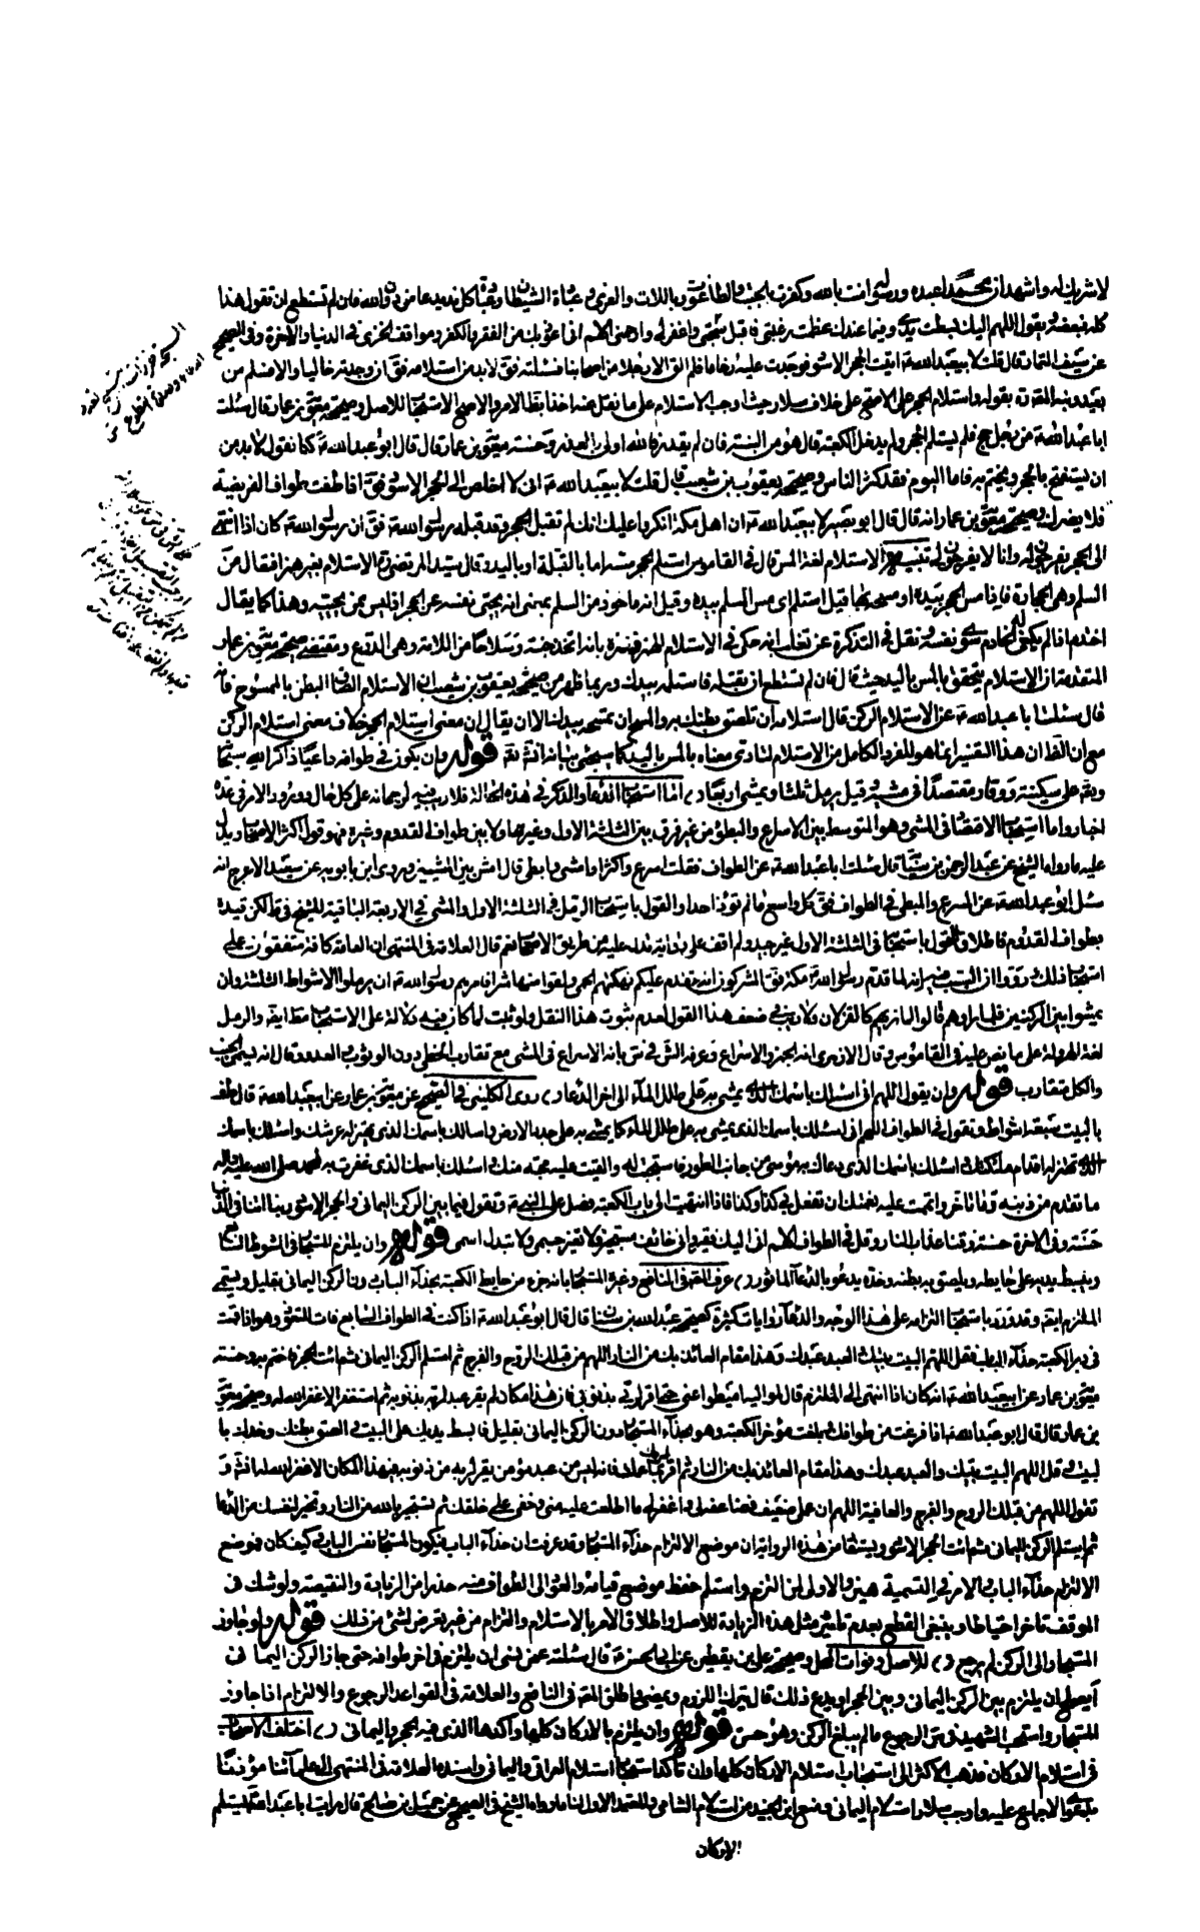 لا شريك له واشهد ان محمدا عبده ورسوله امنت بالله وكفرت بالجبت والطاغوت وباللات والعزى وعبادة الشيطان وعبادة كل ند يدعا من دون الله فان لم تستطع ان تقول هذا
كله فبعضه ويقول اللهم اليك بسطت يدي وفيما عندك عظمت رغبتي فاقبل سبحتي واغفر لي وارحمني اللهم انى اعوذ بك من الفقر والكفر ومواقف الخزى فى الدنيا والاخرة وفى الصحيح
عن سيف التمار قال قلت لابيعبد الله ع اتيت الحجر الاسود فوجدت عليه زحاما فلم الق الا رجلا من اصحابنا فسئلته فقال لابد من استلامه فقال ان وجدته خاليا والا فسلم من
بعيد ونبه المص بقوله واستلام الحجر على الاصح على خلاف سلار حيث اوجب الاستلام على ما نقل عنه اخذا بظاهر الامر والاصح الاستحباب للاصل وصحيحة معوية بن عمار قال سئلت
ابا عبد الله ع من رجل حج فلم يستلم الحجر ولم يدخل الكعبة قال هو من السنة فان لم يقدر فالله اولى بالعذر وحسنة معوية بن عمار قال قال ابو عبد الله ع كنا نقول لابد من
ان يستفتح بالحجر ويختم به فاما اليوم فقد كثر الناس وصحيحة يعقوب بن شعيب قال قلت لابيعبد الله ع انى لا اخلص الى الحجر الاسود فقال اذا طفت طواف الفريضة
فلا يضرك وصحيحة معوية بن عمار انه قال قال ابو بصير لابيعبد الله ع ان اهل مكة انكروا عليك انك لم تقبل الحجر وقد قبله رسول الله ص فقال ان رسول الله ص كان اذا انتهى
الى الحجر يفرجون له وانا لا يفرجون لى تنبيه الاستلام لغة المس قال في القاموس استلم الحجر مسه اما بالقبلة او باليد وقال سيد المرتضى الاستلام بغير همز افتعال من
السلم وهى الحجارة فاذا مس الحجر بيده او مسحه بها قيل استلم اى مس السلم بيده وقيل انه ماخوذ من السلم بمعنى انه يحيى نفسه عن الحجر اذ ليس ممن يحييه وهذا كما يقال
اختدم اذا لم يكن له خادم سوى نفسه ونقل فى التذكرة عن ثعلب انه حكى فى الاستلام الهمز وفسره بانه اتخذه جنة وسلاحا من اللامة وهى الدرع ومقتضى صحيحة معوية بن عمار
المتقدمة ان الاستلام يتحقق بالمس باليد حيث قال فان لم تستطع ان تقبله فاستلمه بيدك وربما ظهر من صحيحة يعقوب بن شعيب ان الاستلام الصاق البطن بالممسوح فانه
قال سئلت ابا عبد الله ع عن الاستلام الركن قال استلامه ان تلصق بطنك به والمسح ان تمسحه بيدك الا ان يقال ان معنى استلام الحجر خلاف معنى استلام الركن
مع ان الظ ان هذا التفسير انما هو للفرد الكامل من الاستلام لتادى معناه بالمس باليد كما سيجئ بيانه انشاء الله تعه قوله وان يكون فى طوافه داعيا ذاكرا لله سبحانه
وتعه على سكينة ووقار مقتصدا فى مشيه وقيل يرمل ثلثا ويمشى اربعا اما استحباب الدعاء والذكر فى هذه الحالة فلا ريب فيه لرجحانه على كل حال وورود الامر فى عدة
اخبار واما استحباب الاقتصاد فى المشى وهو التوسط بين الاسراع والبطؤ من غير فرق بين الثلثة الاول وغيرها ولا بين طواف القدوم وغيره فهو قول اكثر الاصحاب ويدل
عليه ما رواه الشيخ عن عبد الرحمن بن سيابة قال سئلت ابا عبد الله ع عن الطواف فقلت اسرع واكثر او امشى وابطى قال امش بين المشيين وروى ابن بابويه عن سعيد الاعرج انه
سئل ابو عبد الله ع عن المسرع والمبطى فى الطواف فقال كل واسع ما لم تؤذ احدا والقول باستحباب الرمل فى الثلثة الاول والمشى فى الاربعة الباقية للشيخ فى ط لكن قيده
بطواف القدوم فاطلاق القول باستحبابه فى الثلثة الاول غير جيد ولم اقف على رواية تدل عليه من طريق الاصحاب نعم قال العلامة فى المنتهى ان العامة كافة متفقون على
استحباب ذلك ورووا ان السبب فيه انه لما قدم رسول الله ص مكة فقال المشركون انه يقدم عليكم قوم نهكتهم الحمى ولقوا منها شرا فامرهم رسول الله ص ان يرملوا الاشواط الثلثة وان
يمشوا بين الركنين فلما راوهم قالوا ما نريهم كالغزلان ولا ريب فى ضعف هذا القول لعدم ثبوت هذا النقل ولو ثبت لما كان فيه دلالة على الاستحباب مط ايضا والرمل
لغة الهرولة على ما نص عليه فى القاموس وقال الازهرى انه الجمز والاسراع وعرفه الش فى س بانه الاسراع فى المشى مع تقارب الخطى دون الوثوب والعدو وقال انه يسمى الخبب
والكل متقارب قوله وان يقول اللهم انى اسئلك باسمك الذى يمشى به على طلل الماء الى اخر الدعاء روى الكلينى فى الصحيح عن معوية بن عمار عن ابيعبد الله ع قال طف
بالبيت سبعة اشواط وتقول فى الطواف اللهم انى اسئلك باسمك الذى يمشى به على طلل الماء كما يمشى به على جدد الارض واسالك باسمك الذى يهتز له عرشك واسئلك باسمك
الذى تهتز له اقدام ملئكتك واسئلك باسمك الذى دعاك به موسى من جانب الطور فاستجبت له والقيت عليه محبة منك واسئلك باسمك الذى غفرت به لمحمد صلى الله عليه واله
ما تقدم من ذنبه وما تاخر واتممت عليه نعمتك ان تفعل بى كذا وكذا فاذا انتهيت الى باب الكعبة فصل على النبى ص وتقول فيما بين الركن اليمانى والحجر الاسود ربنا اتنا فى الدنيا
حسنة وفى الاخرة حسنة وقنا عذاب النار وقل فى الطواف اللهم انى اليك فقير وانى خائف مستجير فلا تغير جسمى ولا تبدل اسمى قوله وان يلتزم المستجار فى الشوط السابع
ويبسط يديه على حايطه ويلصق به بطنه وخده يدعو بالدعاء الماثور عرف المص فى النافع وغيره المستجار بانه جزء من حايط الكعبة بحذاء الباب دون الركن اليمانى بقليل ويسمى
الملتزم ايضا وقد ورد باستحباب التزامه على هذا الوجه والدعاء روايات كثيرة كصحيحة عبد الله بن سنان قال قال ابو عبد الله ع اذا كنت فى الطواف السابع فات المتعوذ وهو اذا قمت
فى دبر الكعبة حذاء الباب فقل اللهم البيت بيتك والعبد عبدك وهذا مقام العائذ بك من النار اللهم من قبلك الروح والفرج ثم استلم الركن اليمانى ثم ائت الحجر فاختم به وحسنة
معوية بن عمار عن ابيعبد الله ع انه كان اذا انتهى الى الملتزم قال لمواليه اميطوا عنى حتى اقر لربى بذنوبى فان هذا مكان لم يقر عبد لربه بذنوبه ثم استغفر الا غفر الله له وصحيحة معوية
بن عمار قال قال ابو عبد الله ع اذا فرغت من طوافك وبلغت مؤخر الكعبة وهو بحذاء المستجار دون الركن اليمانى بقليل فابسط يديك على البيت والصق بطنك وخدك با
لبيت وقل اللهم البيت بيتك والعبد عبدك وهذا مقام العائذ بك من النار ثم اقر لربك بما عملت فانه ليس من عبد مؤمن يقر لربه من ذنوبه فى هذا المكان الا غفر الله له انشاء الله و
تقول اللهم من قبلك الروح والفرج والعافية اللهم ان عملى ضعيف فضاعفه لى واغفر لى ما اطلعت عليه منى وخفى على خلقك ثم تستجير بالله من النار وتخير لنفسك من الدعاء
ثم استلم الركن اليمانى ثم ائت الحجر الاسود ويستفاد من هذه الرواية ان موضع الالتزام حذاء المستجار وقد عرفت ان حذاء الباب فيكون المستجار نفس الباب وكيف كان فموضع
الالتزام حذاء الباب والامر فى التسمية هين والاولى لمن التزم واستلم حفظ موضع قيامه والعود الى الطواف منه حذرا من الزيادة والنقيصة ولو شك فى
الموقف تاخر احتياطا وينبغى القطع بعدم تاثير مثل هذه الزيادة للاصل واطلاق الامر بالاستلام والالتزام من غير تعرض لشئ من ذلك قوله ولو جاوز
المستجار الى الركن لم يرجع للاصل وفوات المحل وصحيحة على بن يقطين عن ابى الحسن ع قال سئلته عمن نسى ان يلتزم فى اخر طوافه حتى جاز الركن اليمانى
ايصلح ان يلتزم بين الركن اليمانى وبين الحجر او يدع ذلك قال يترك اللزوم ويمضى واطلق المص فى النافع والعلامة فى القواعد الرجوع والالتزام اذا جاوز
المستجار واستحب الشهيد فى س الرجوع ما لم يبلغ الركن وهو حسن قوله وان يلتزم بالاركان كلها واكدها الذى فيه الحجر واليمانى اختلف الاصحاب
فى استلام الاركان فذهب الاكثر الى استحباب استلام الاركان كلها وان تاكد استحباب استلام العراقى واليمانى واسنده العلامة فى المنتهى الى علمائنا مؤذنا
بدعوى الاجماع عليه واوجب سلار استلام اليمانى ومنع ابن الجنيد من استلام الشامى والمعتمد الاول لنا ما رواه الشيخ فى الصحيح عن جميل بن صالح قال رايت ابا عبد الله ع يستلم
الاركان